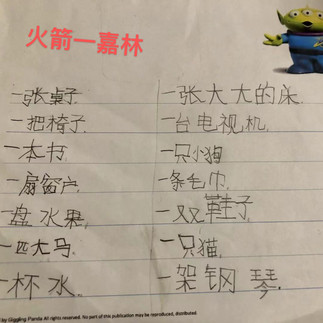 火箭一嘉林
一张桌子.
一把椅子.
一本书.
一扇窗户
一盘水果.
一匹大马.
一杯水.
一张大大的床
一台电视机.
一只小狗
一条毛巾.
一双鞋子.
一只猫.
一架钢琴.
by Giggling Panda All rights reserved. No part of this publication may be reproduced, distributed